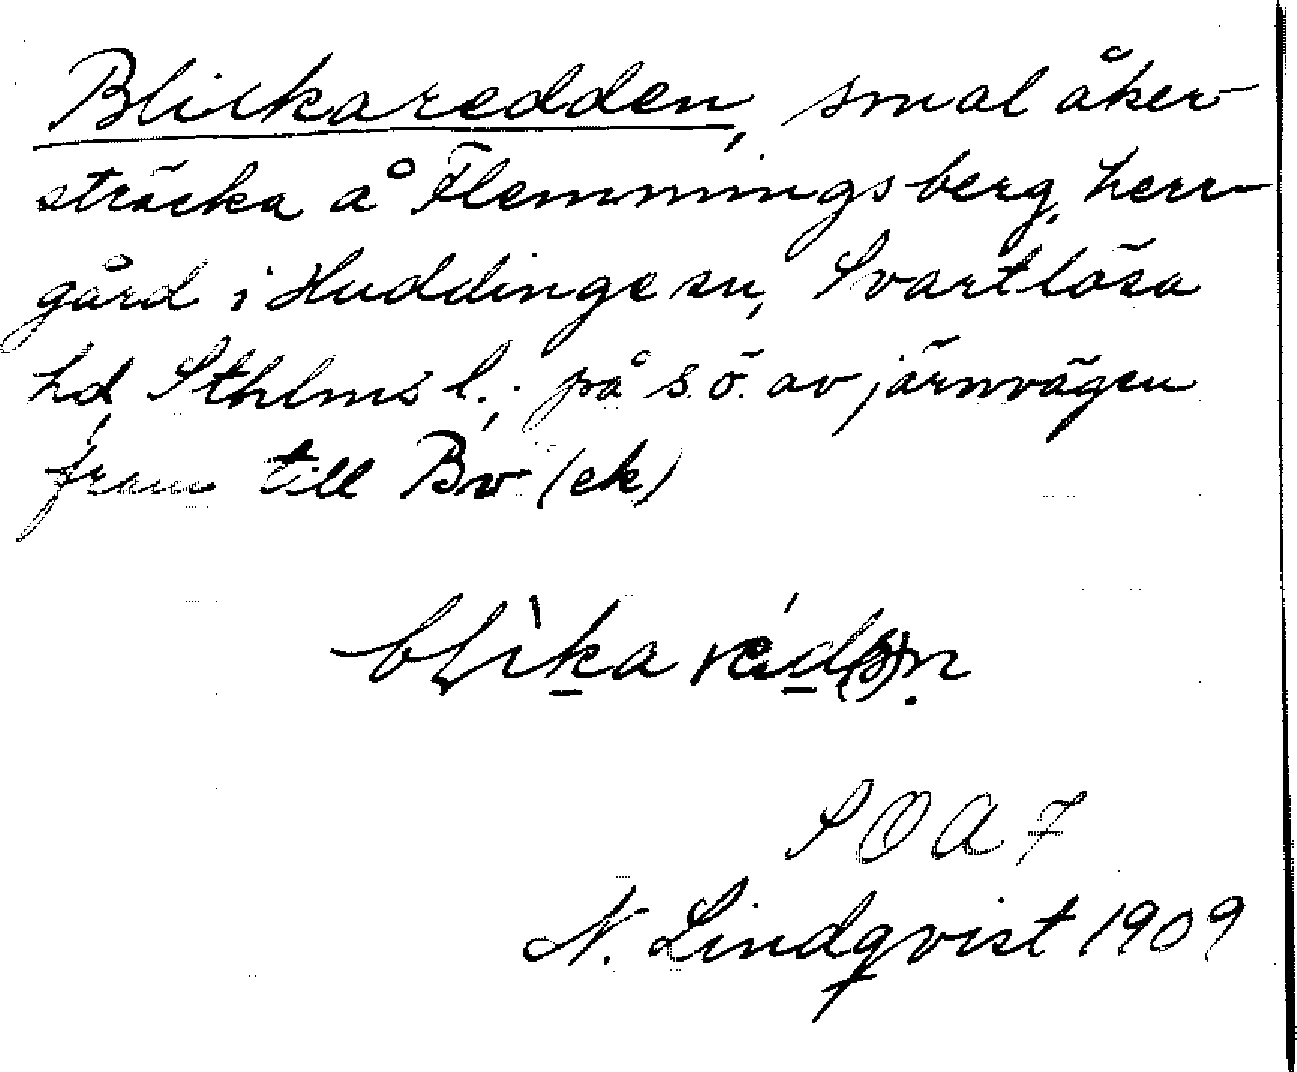 Blickaredden, smal åker-
sträcka å Flemmingsberg, herr-
gård i Huddinge sn, Svartlösa
hd Sthlms l.; på s.ö. av järnvägen
fram till Bv (ek)
blika
S O A 7
N. Lindqvist 1909